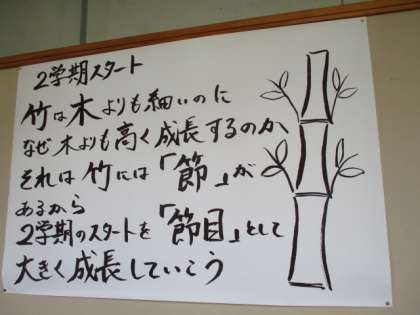 2学期スタート
竹は木よりも細いのに
なぜ木よりも高く成長するのか
それは竹には「節」が
あるから
2学期のスタートを「節目」として
大きく成長していこう